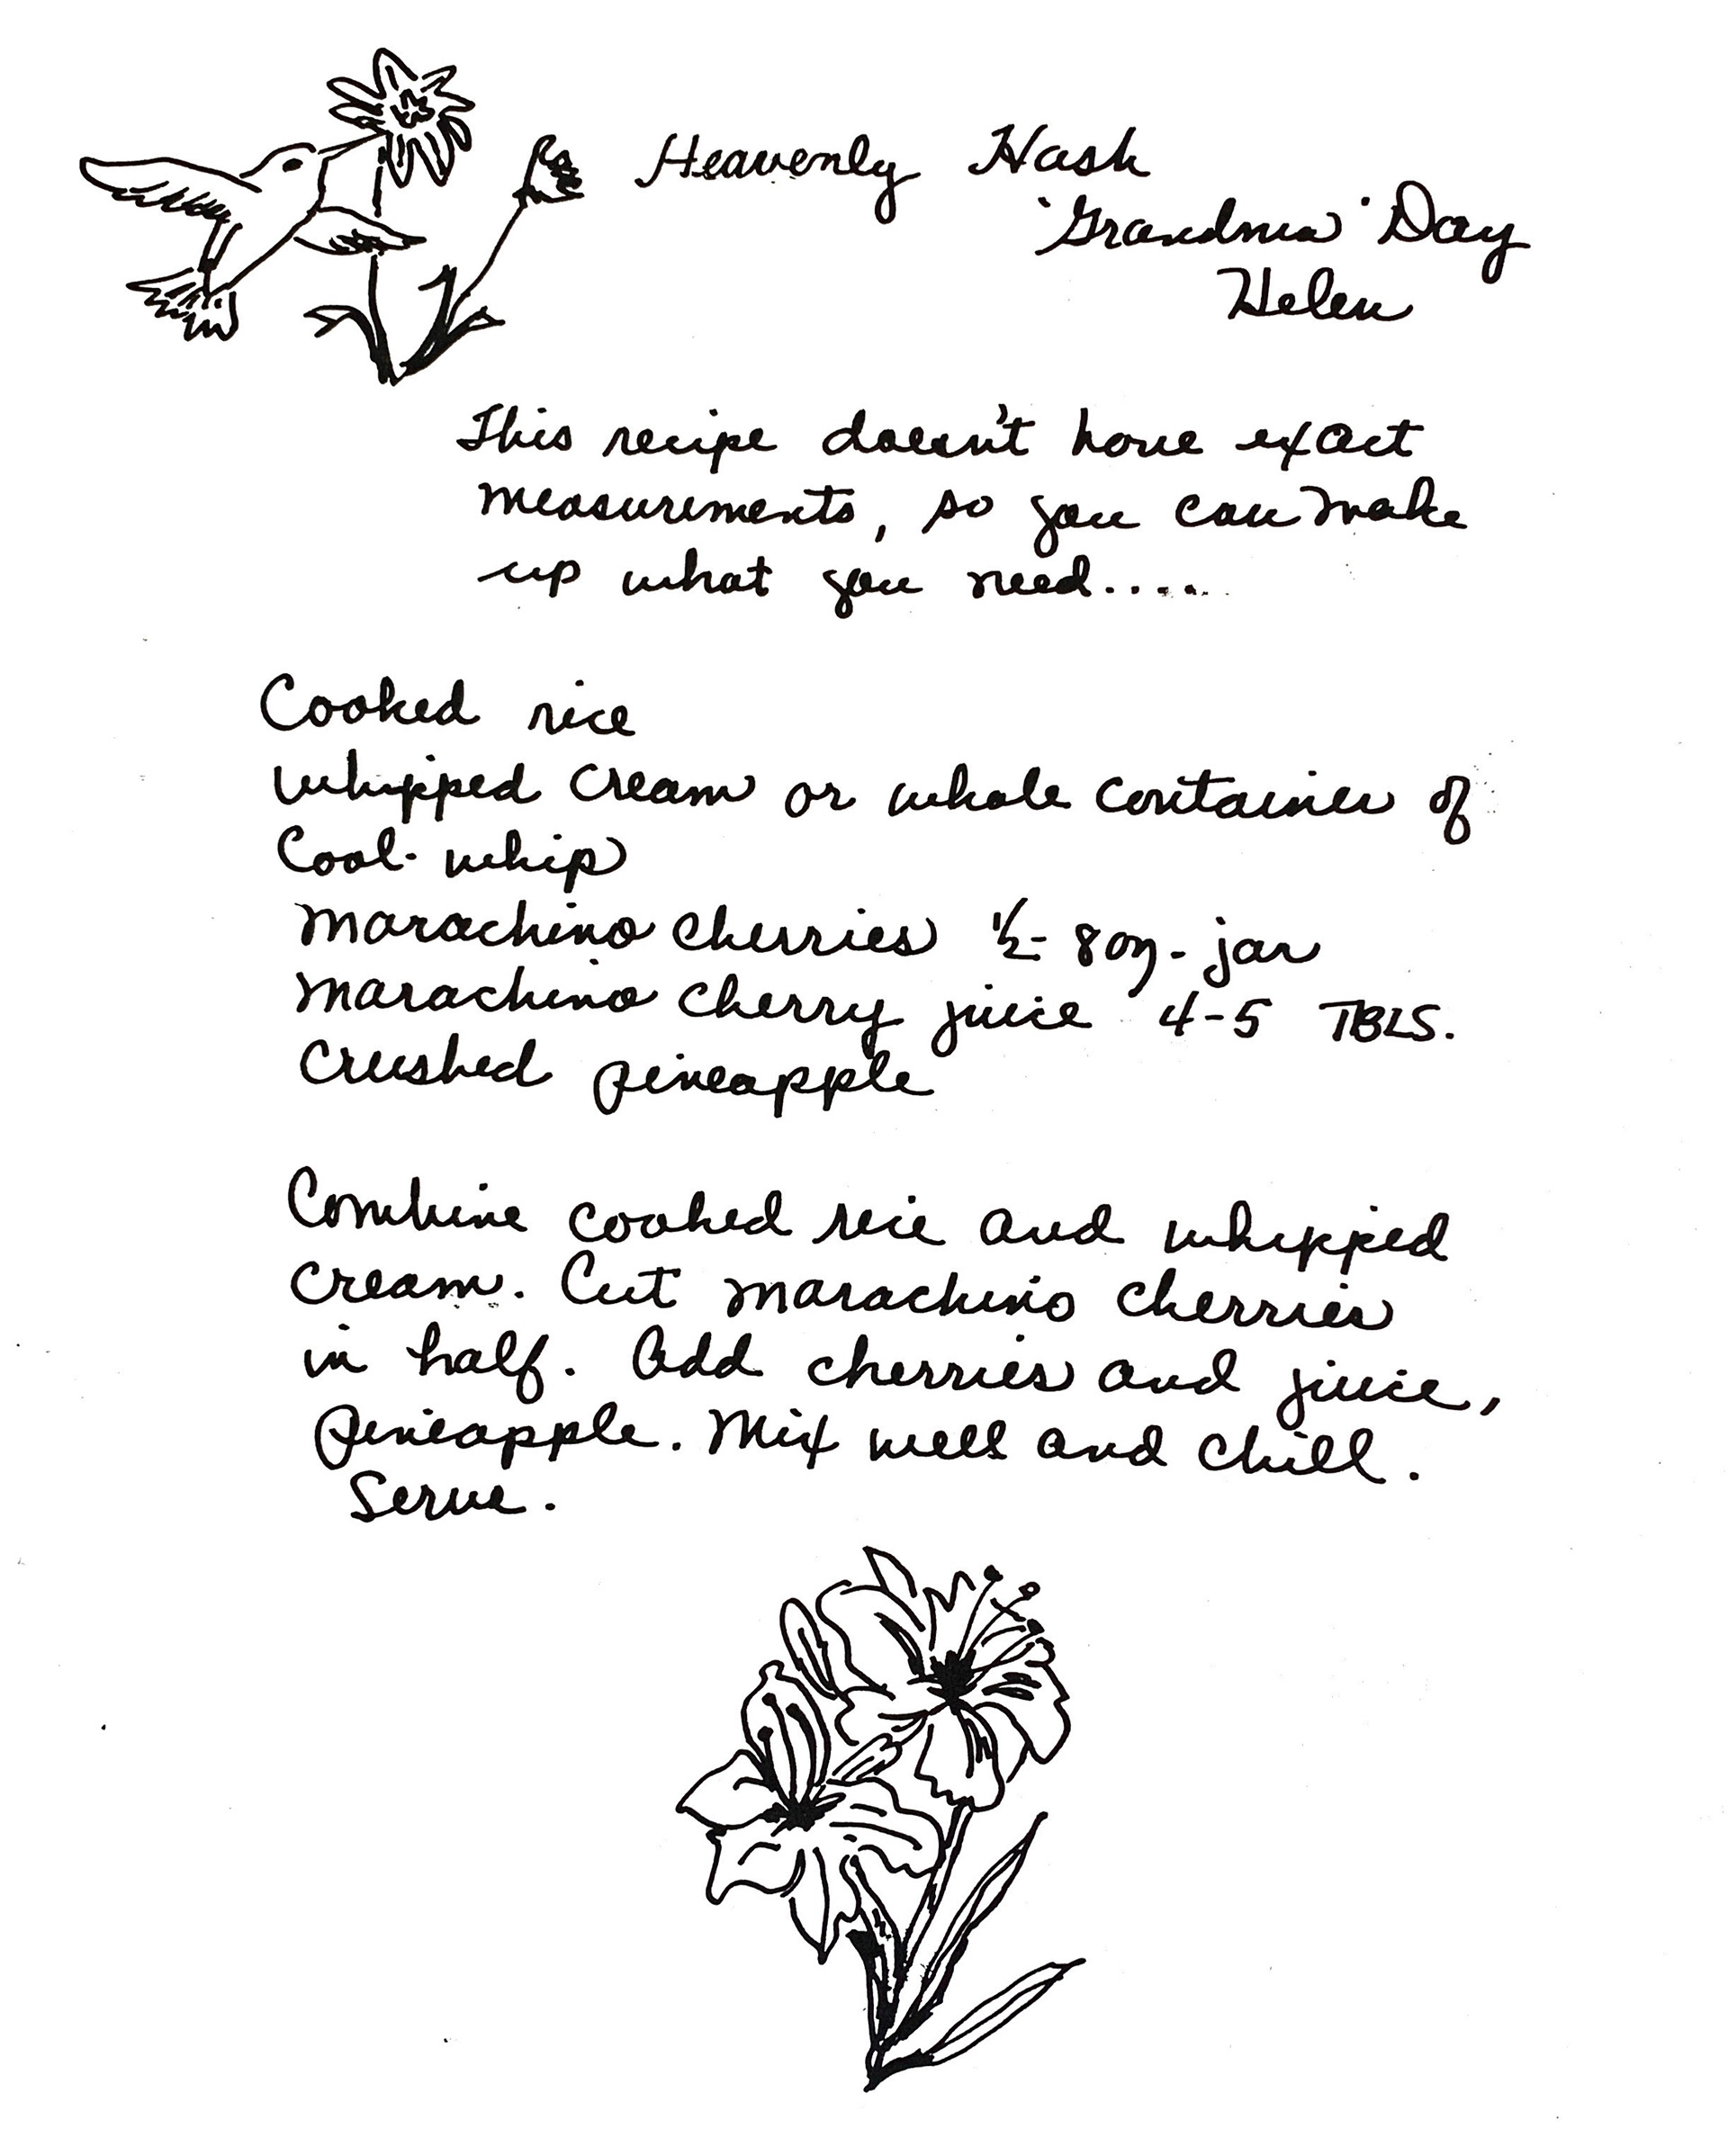 Heavenly Hash
"Grandma" Day
Helen
This recipe doesn't have exact
measurements, so you can make
up what you need.....
Cooked rice
Whipped Cream or whole container of
Cool-whip
Marachino Cherries 1/2 - 8 oz - jar
Marachino Cherry juice 4-5 TBLS.
Crushed pineapple
Combine cooked rice and whipped
cream. Cut marachino cherries
in half. Add cherries and juice,
pineapple. Mix well and chill.
Serve.